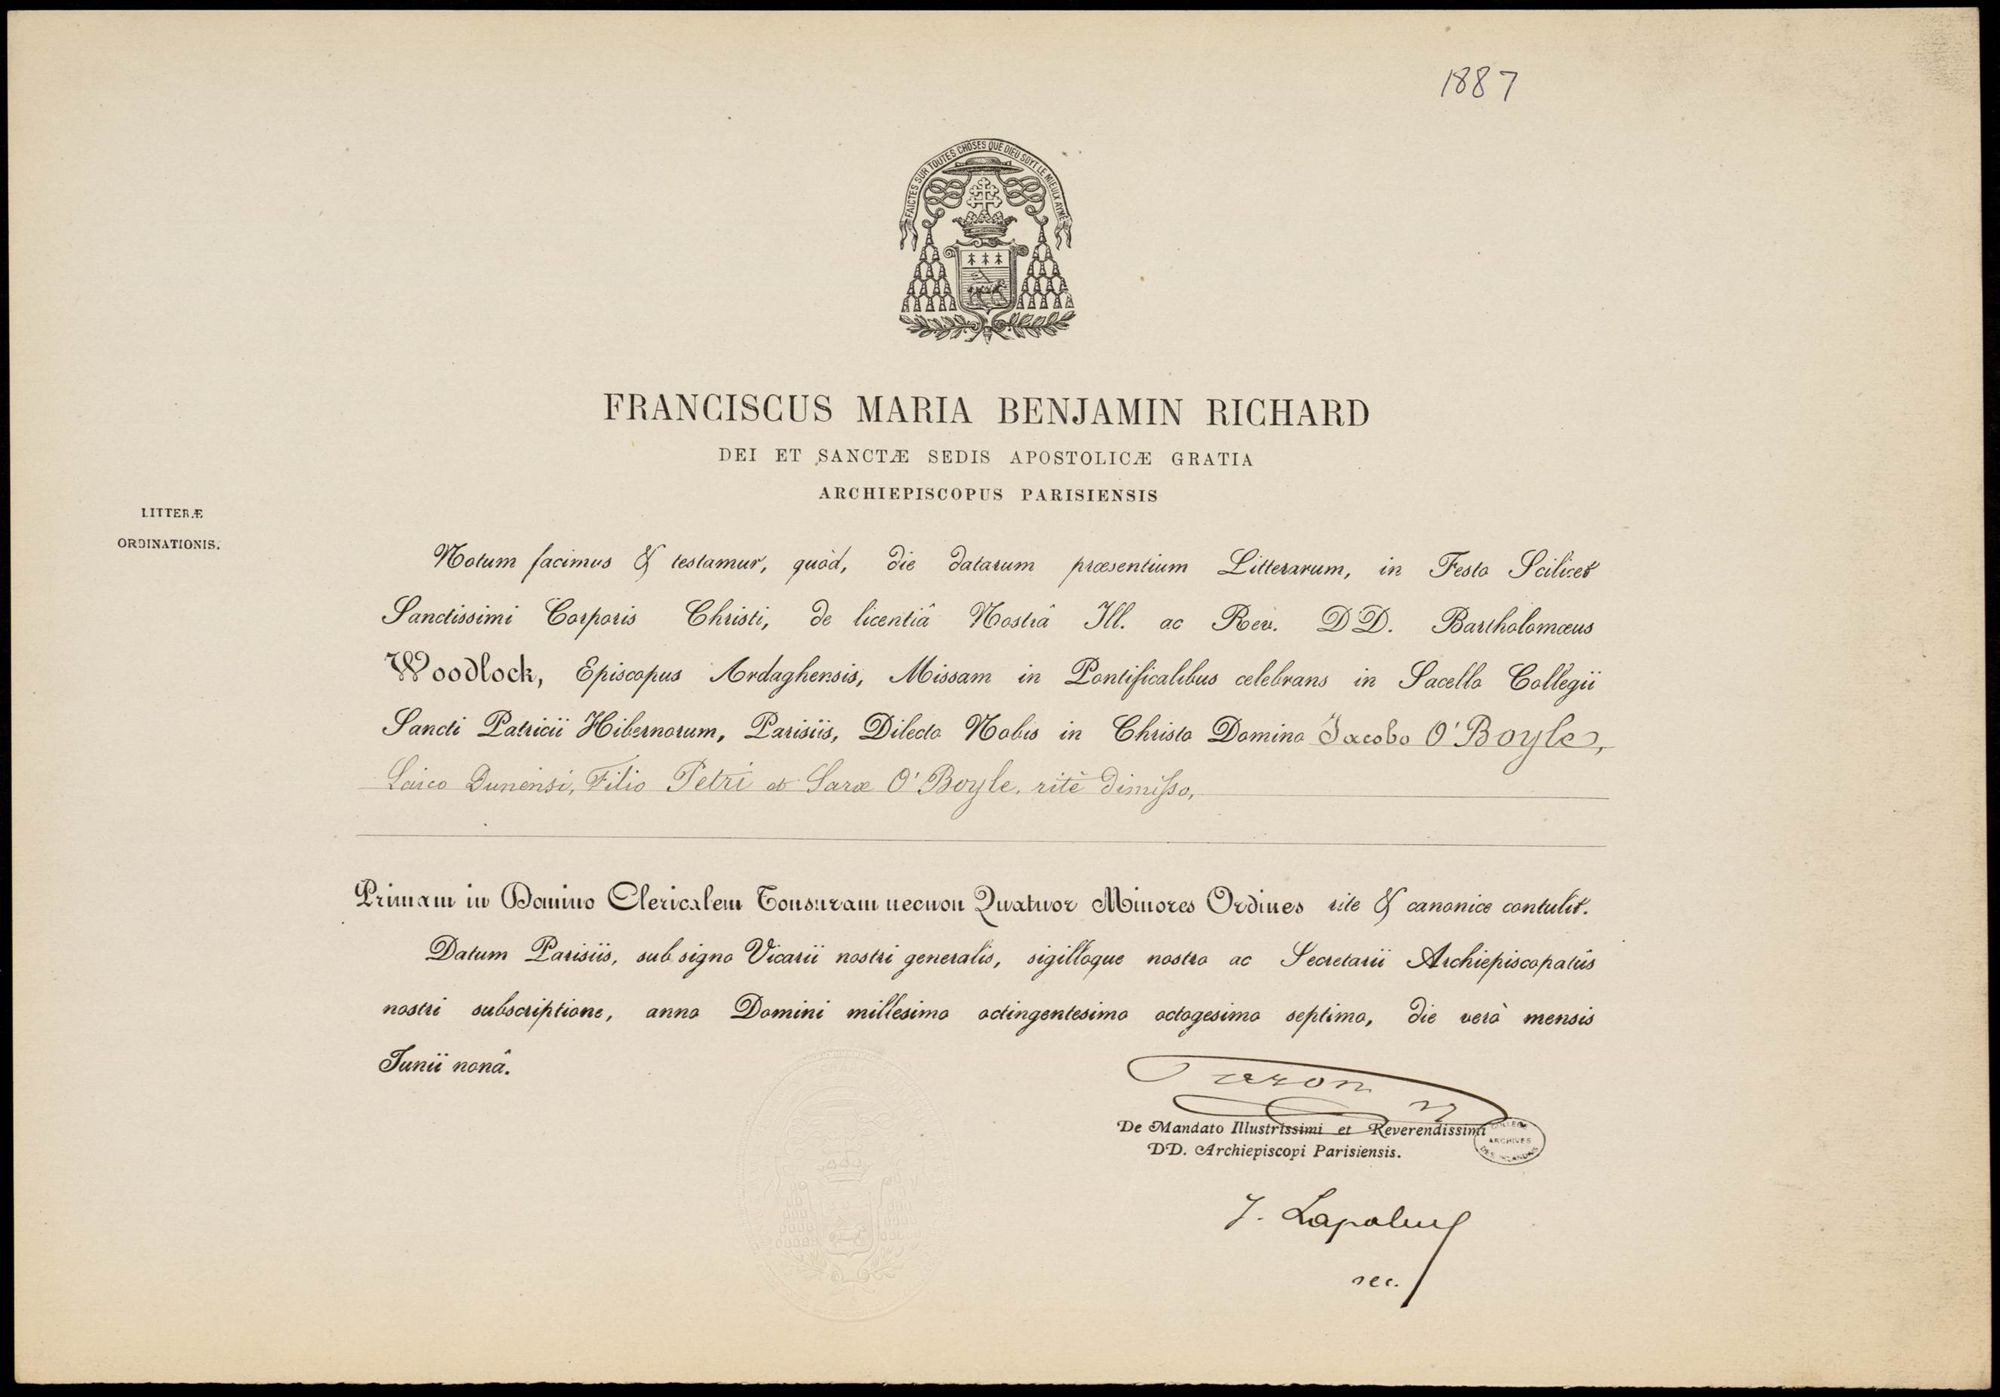 1887
FAICTES SUR TOUTES CHOSES QUE DIEU SOYT LE MIEULX AYMÉ
FRANCISCUS MARIA BENJAMIN RICHARD
DEI ET SANCTÆ SEDIS APOSTOLICÆ GRATIA
ARCHIEPISCOPUS PARISIENSIS
LITTERÆ
ORDINATIONIS.
Notum facimus & testamur, quòd, die datarum præsentium Litterarum, in Festo Scilicet
Sanctissimi Corporis Christi, de licentiâ Nostrâ Ill. ac Rev. DD. Bartholomœus
Woodlock, Episcopus Ardaghensis, Missam in Pontificalibus celebrans in Sacello Collegii
Sancti Patricii Hibernorum, Parisiis, Dilecto Nobis in Christo Domino Jacobo O'Boyle,
Laico Dunensi, Filio Petri et Saræ O'Boyle, ritè dimisso,
Primam in Domino Clericalem Tonsuram necnon Quatuor Minores Ordines rite & canonice contulit.
Datum Parisiis, sub signo Vicarii nostri generalis, sigilloque nostro ac Secretarii Archiepiscopatûs
nostri subscriptione, anno Domini millesimo octingentesimo octogesimo septimo, die verò mensis
Junii nonâ.
De Mandato Illustrissimi et Reverendissimi
DD. Archiepiscopi Parisiensis.
COLLEGE
ARCHIVES
DES IRLANDAIS
J.
sec.